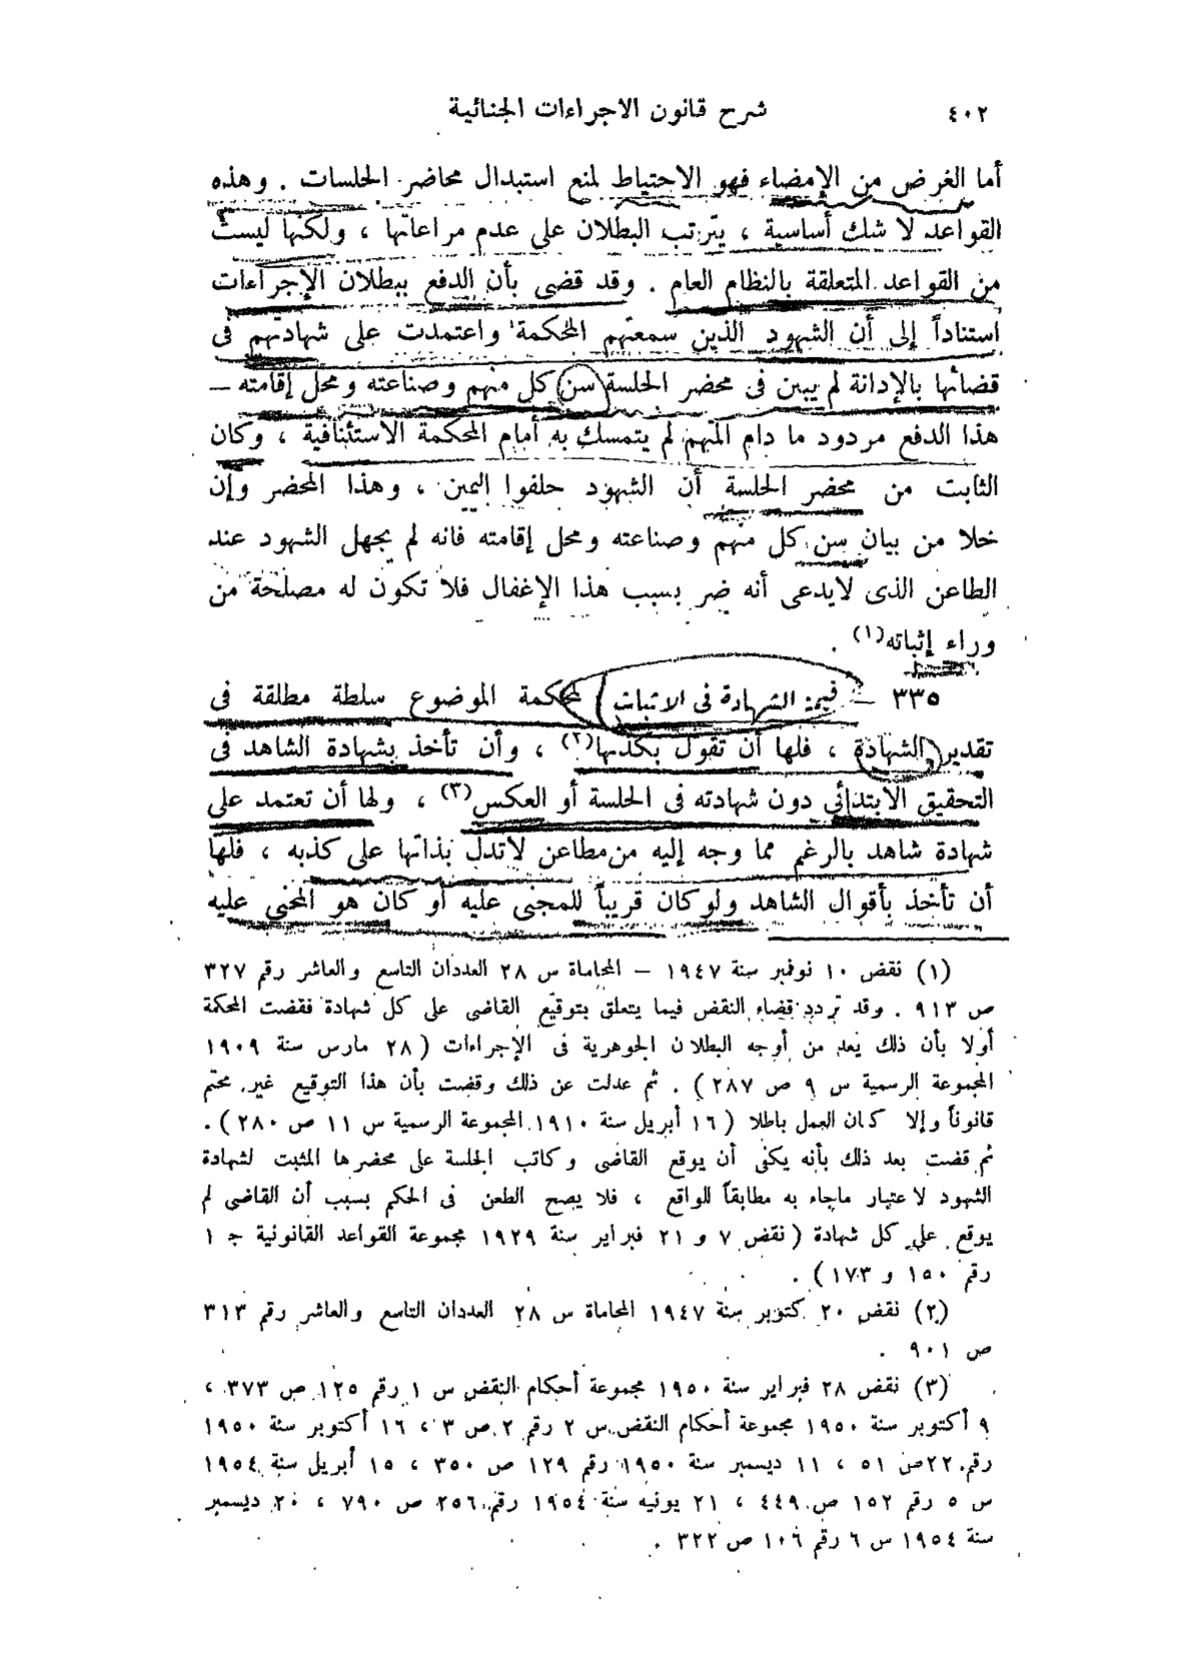 ٤٠٢
شرح قانون الاجراءات الجنائية
أما الغرض من الإمضاء فهو الاحتياط لمنع استبدال محاضر الجلسات . وهذه
القواعد لا شك أساسية ، يترتب البطلان على عدم مراعاتها ، ولكنها ليست
من القواعد المتعلقة بالنظام العام . وقد قضى بأن الدفع ببطلان الإجراءات
استناداً إلى أن الشهود الذين سمعتهم المحكمة واعتمدت على شهادتهم فى
قضائها بالإدانة لم يبين فى محضر الجلسة سن كل منهم وصناعته ومحل إقامته –
هذا الدفع مردود ما دام المتهم لم يتمسك به أمام المحكمة الاستئنافية ، وكان
الثابت من محضر الجلسة أن الشهود حلفوا اليمين ، وهذا المحضر وإن
خلا من بيان سن كل منهم وصناعته ومحل إقامته فانه لم يجهل الشهود عند
الطاعن الذى لايدعى أنه ضر بسبب هذا الإغفال فلا تكون له مصلحة من
وراء إثباته(١) .
٣٣٥ – قيمة الشهادة فى الاثبات لمحكمة الموضوع سلطة مطلقة فى
تقدير الشهادة ، فلها أن تقول بكذبها(٢) ، وأن تأخذ بشهادة الشاهد فى
التحقيق الابتدائى دون شهادته فى الجلسة أو العكس(٣) ، ولها أن تعتمد على
شهادة شاهد بالرغم مما وجه إليه من مطاعن لاتدل بذاتها على كذبه ، فلها
أن تأخذ بأقوال الشاهد ولو كان قريباً للمجنى عليه أو كان هو المجنى عليه
(١) نقض ١٠ نوفمبر سنة ١٩٤٧ – المحاماة س ٢٨ العددان التاسع والعاشر رقم ٣٢٧
ص ٩١٣ . وقد تردد قضاء النقض فيما يتعلق بتوقيع القاضى على كل شهادة فقضت المحكمة
أولا بأن ذلك يعد من أوجه البطلان الجوهرية فى الإجراءات ( ٢٨ مارس سنة ١٩٠٩
المجموعة الرسمية س ٩ ص ٢٨٧ ) . ثم عدلت عن ذلك وقضت بأن هذا التوقيع غير محتم
قانوناً وإلا كان العمل باطلا ( ١٦ أبريل سنة ١٩١٠ المجموعة الرسمية س ١١ ص ٢٨٠ ) .
ثم قضت بعد ذلك بأنه يكفى أن يوقع القاضى وكاتب الجلسة على محضرها المثبت لشهادة
الشهود لاعتبار ماجاء به مطابقاً للواقع ، فلا يصح الطعن فى الحكم بسبب أن القاضى لم
يوقع على كل شهادة ( نقض ٧ و ٢١ فبراير سنة ١٩٢٩ مجموعة القواعد القانونية ج ١
رقم ١٥٠ و ١٧٣ ) .
(٢) نقض ٢٠ كتوبر سنة ١٩٤٧ المحاماة س ٢٨ العددان التاسع والعاشر رقم ٣١٣
ص ٩٠١ .
(٣) نقض ٢٨ فبراير سنة ١٩٥٠ مجموعة أحكام النقض س ١ رقم ١٢٥ ص ٣٧٣ ،
٩ أكتوبر سنة ١٩٥٠ مجموعة أحكام النقض س ٢ رقم ٢ ص ٣ ، ١٦ أكتوبر سنة ١٩٥٠
رقم ٢٢ ص ٥١ ، ١١ ديسمبر سنة ١٩٥٠ رقم ١٢٩ ص ٣٥٠ ، ١٥ أبريل سنة ١٩٥٤
س ٥ رقم ١٥٢ ص ٤٤٩ ، ٢١ يونيه سنة ١٩٥٤ رقم ٢٥٦ ص ٧٩٠ ، ٢٠ ديسمبر
سنة ١٩٥٤ س ٦ رقم ١٠٦ ص ٣٢٢ .